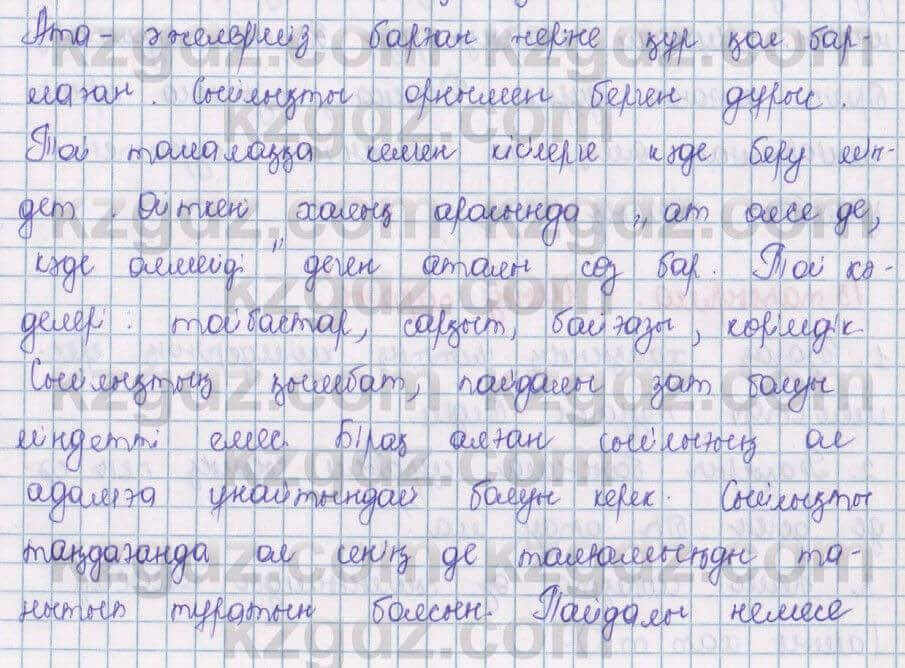 Ата - әжелеріміз барған жерже құр қол бар-
маған. Сыйлықты орнымен берген дұрыс.
Той томалаққа келген кісілерге кәде беру мін-
дет. Өйткені халық аралында „ат өлсе де,
кәде өлмейді" деген аталы сөз бар. Той кә-
делері: тойбастар, сарқыт, байғазы, көрімдік
Сыйлықтың қымбат, пайдалы зат болуы
міндетті емес. Бірақ алған сыйлығың ол
адамға ұнайтындай болуы керек. Сыйлықты
таңдағанда ол сенің де талғамыңды та-
нытып тұратын болсын. Пайдалы немесе